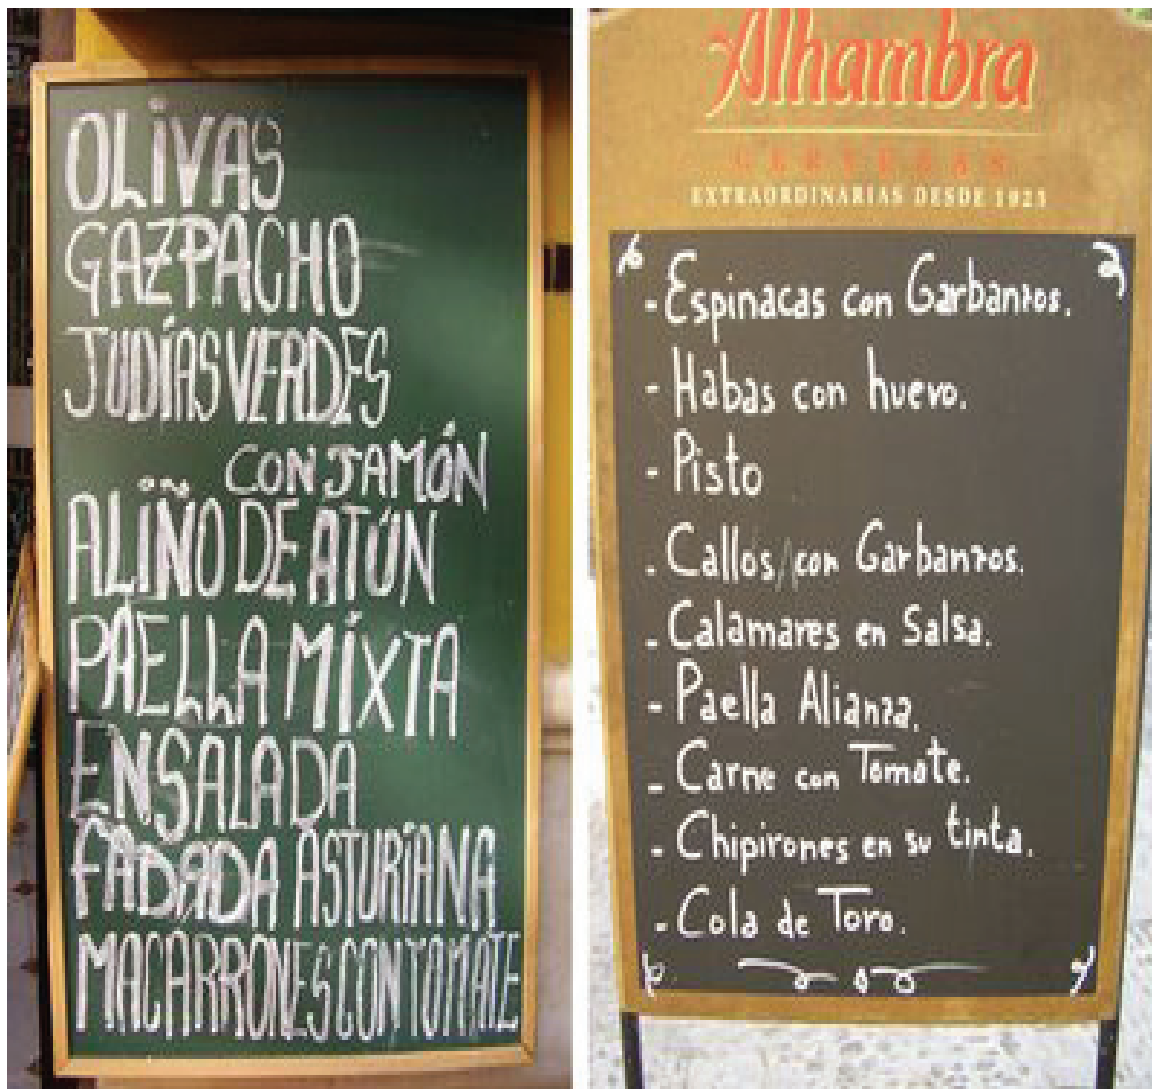 OLIVAS
GAZPACHO
JUDÍAS VERDES
CON JAMÓN
ALIÑO DE ATÚN
PAELLA MIXTA
ENSALADA
FABADA ASTURIANA
MACARRONES CON TOMATE
Alhambra
CERVEZAS
EXTRAORDINARIAS DESDE 1925
- Espinacas con Garbanzos.
- Habas con huevo.
- Pisto
. Callos/con Garbanzos.
- Calamares en Salsa.
- Paella Alianza.
- Carne con Tomate.
- Chipirones en su tinta.
- Cola de Toro.